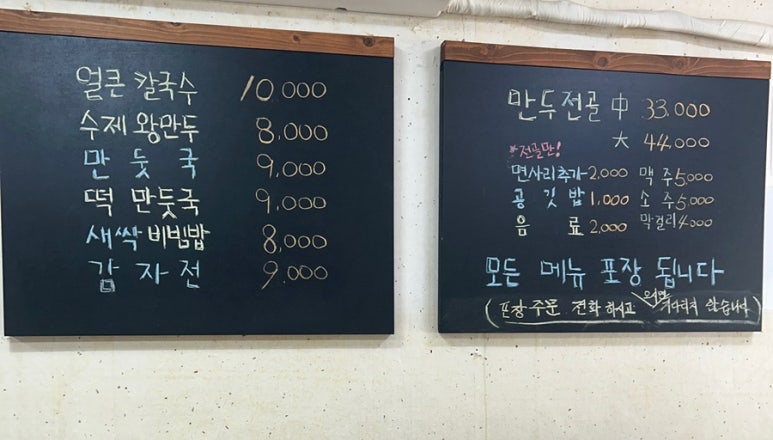 얼큰 칼국수 10.000
수제 왕만두 8,000
만둣국 9,000
떡 만둣국 9,000
새싹 비빔밥 8,000
감자전 9.000
만두전골 中 33.000
大 44.000
*전골만!
면사리추가 2.000 맥주 5.000
공깃밥 1,000 소주 5.000
음료 2,000 막걸리 4.000
모든 메뉴 포장 됩니다
(포장주문 전화하시고 오시면 기다리지 않습니다)